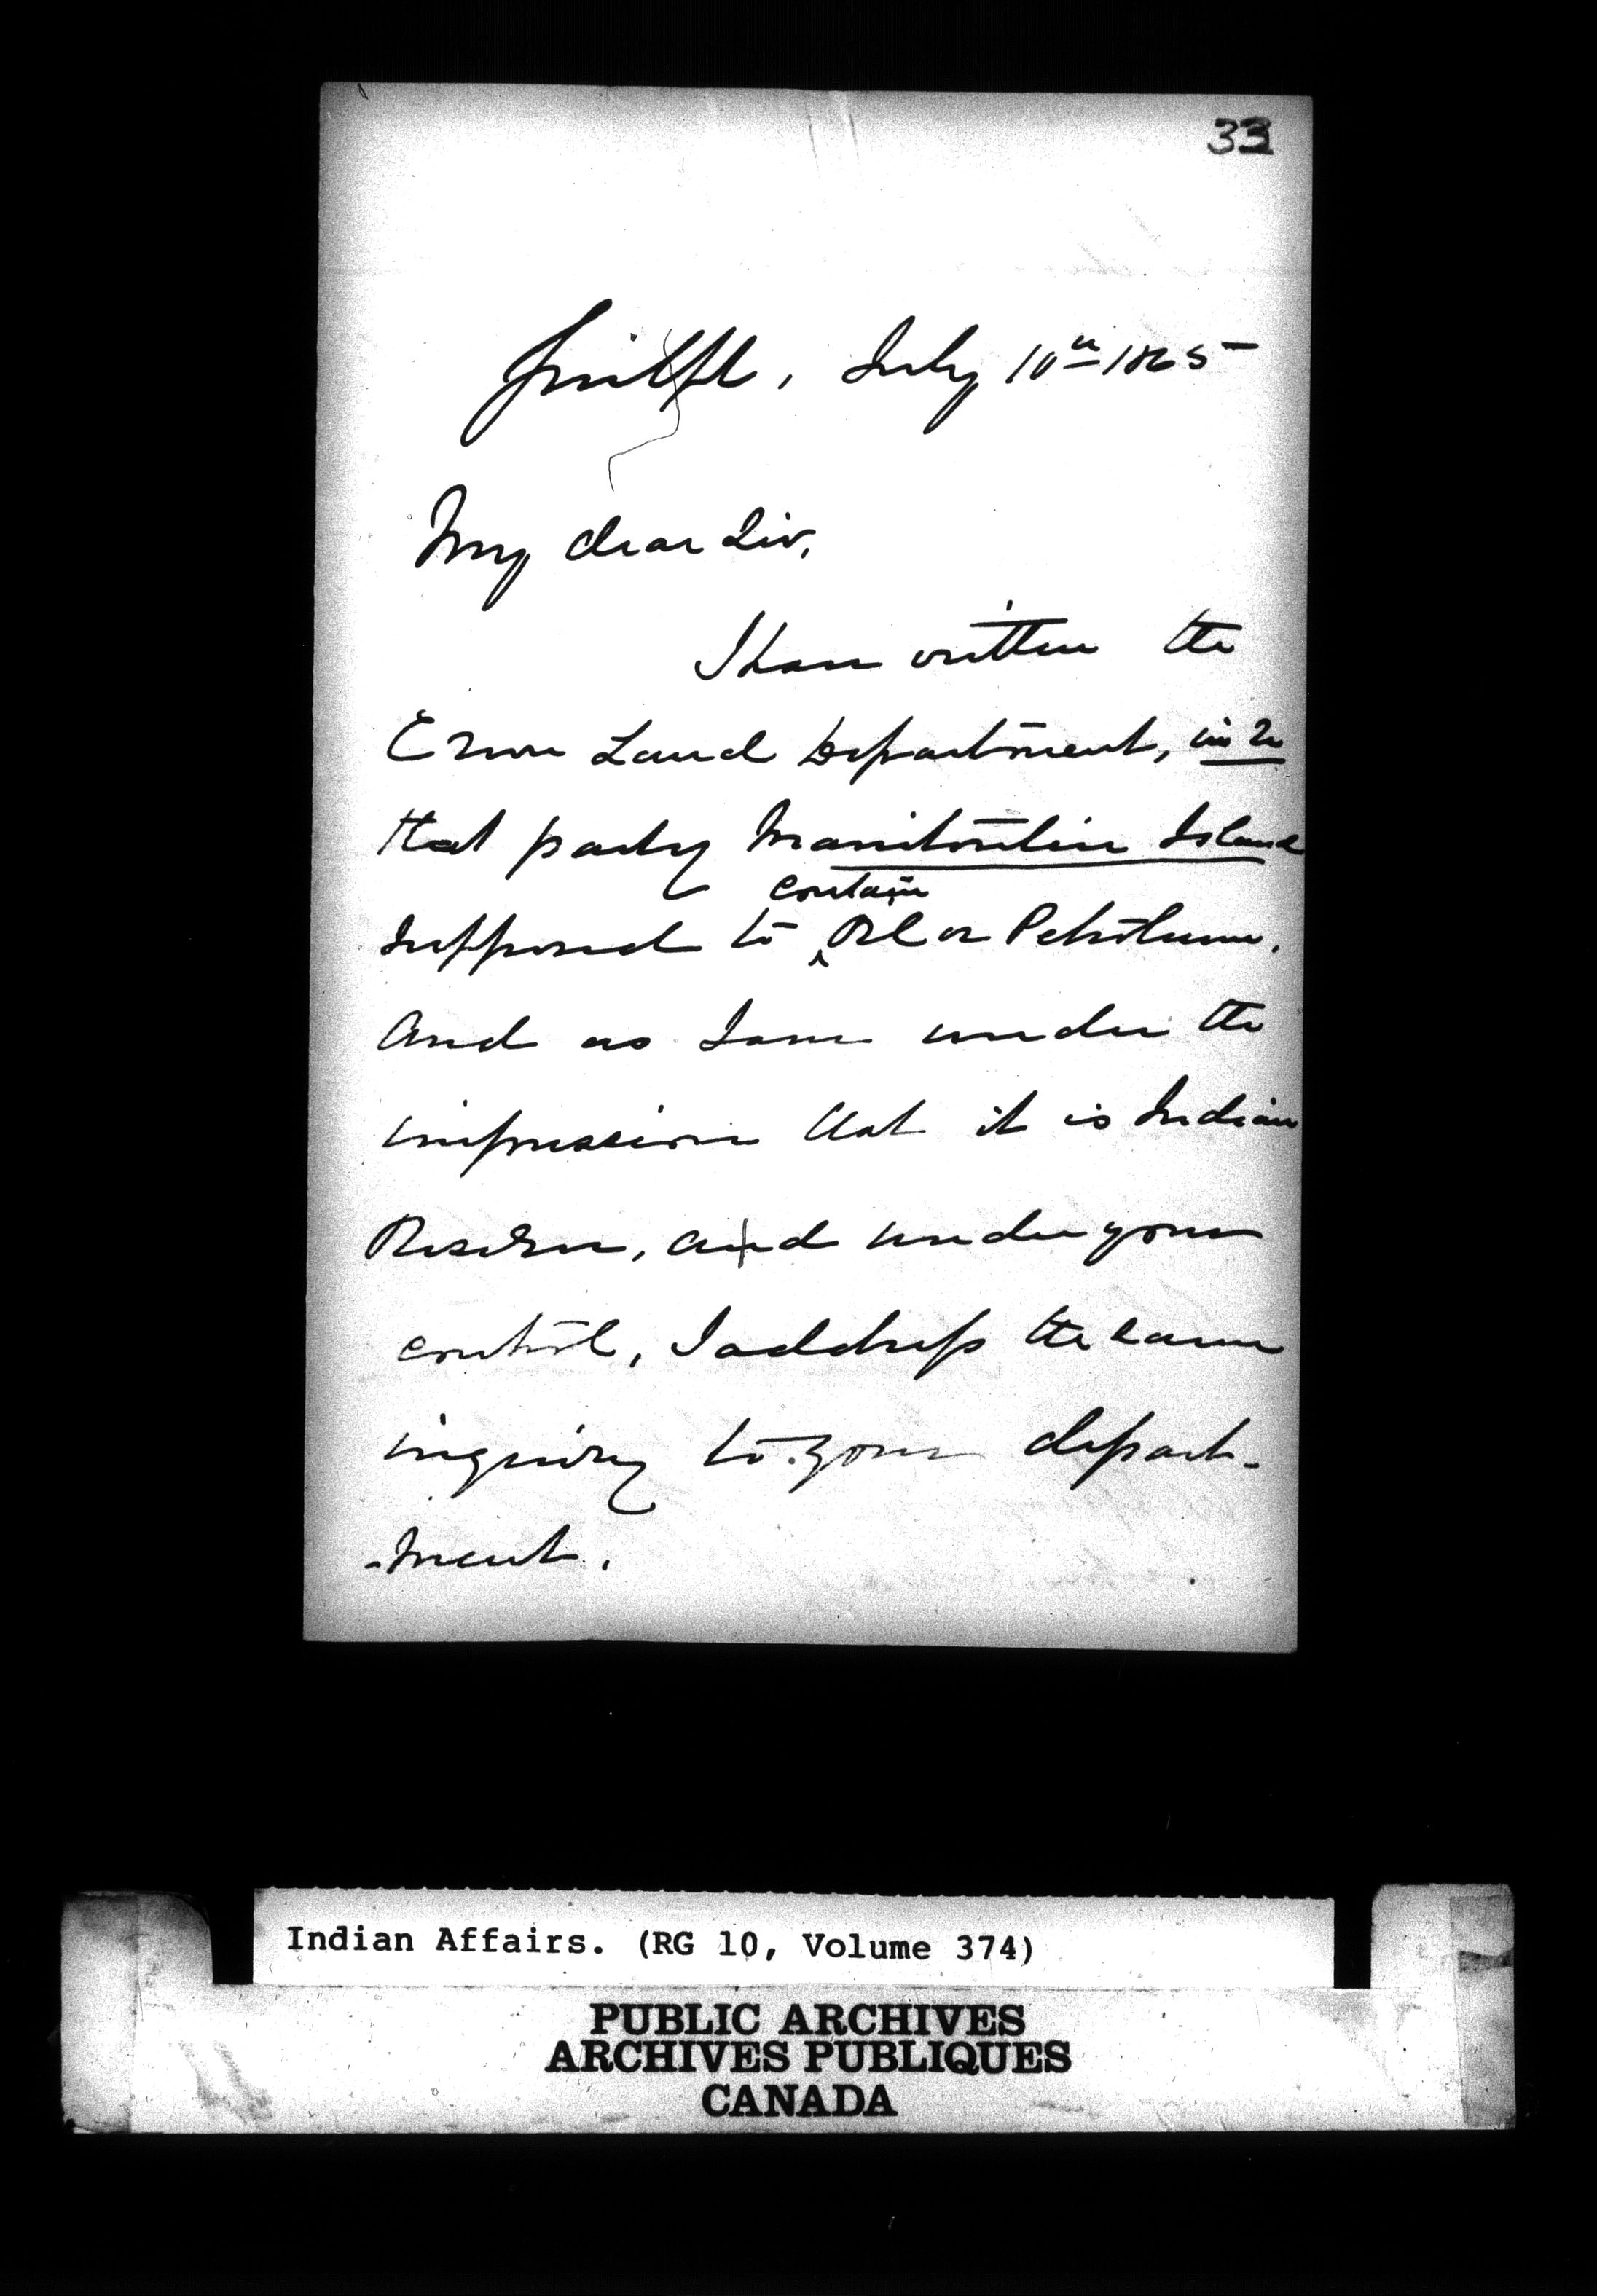 33
Guelph, July 10th 1865
My dear Sir,
I have written the
Crown Land Department, in re
that party Manitoulin Island
supposed to contain Oil or Petroleum.
And as I am under the
impression that it is Indian
Reserve, and under your
control, I address the same
inquiry to your depart-
-ment.
Indian Affairs. (RG 10, Volume 374)
PUBLIC ARCHIVES
ARCHIVES PUBLIQUES
CANADA